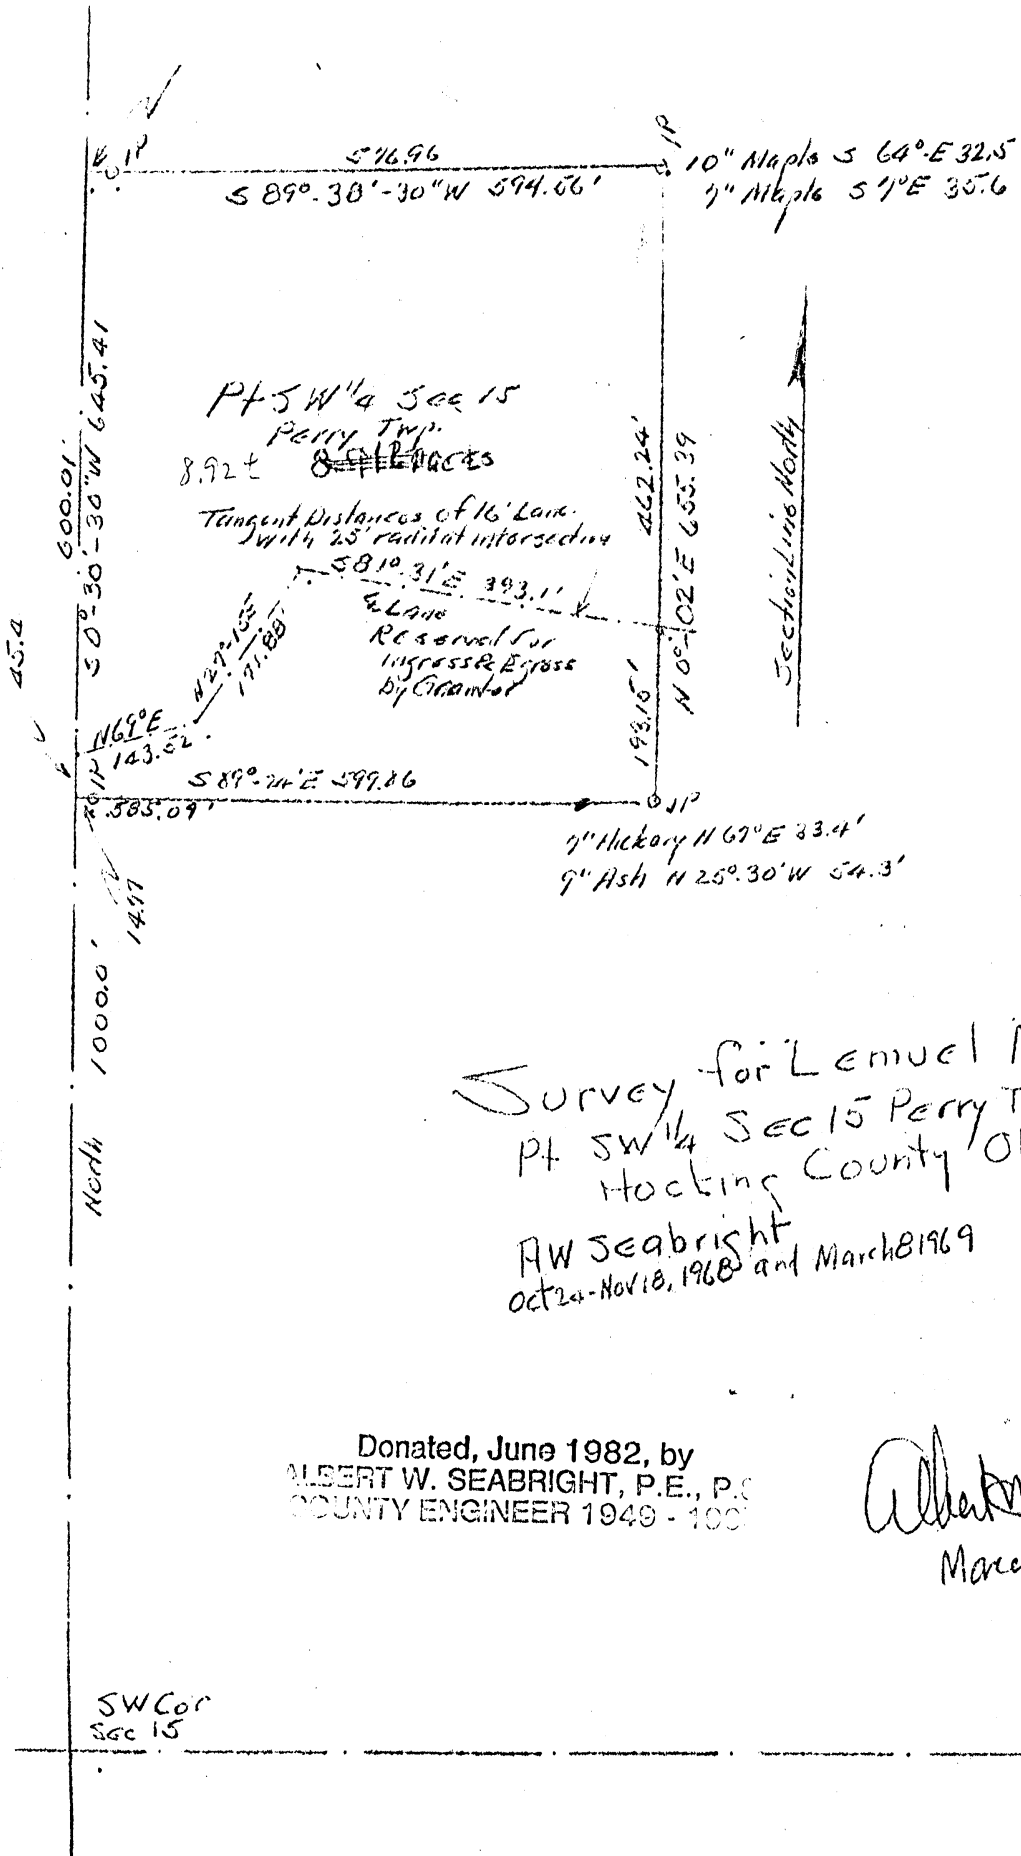 IP
576.96
S 89°-38'-30"W 594.56'
IP
10" Maple S 64°-E 32.5
7" Maple S 7°E 35.6
600.01'
S 0°-30'-30"W 645.41
Pt SW 1/4 Sec 15
Perry Twp.
8.92±
Acres
Tangent Distances of 16' Lane
with 25' radii at intersection
S 81°.31'E 393.1'
₵ Lane
Reserved for
Ingress & Egress
by Grantor
462.24'
N 0°-02'E 655.39
193.15'
Section Line North
171.88'
45.4
N69°E
143.52
IP
S 89°-24'E 599.86
585.09'
IP
7" Hickory N 67°E 33.4'
9" Ash N 25°.30'W 54.3'
14.77
North 1000.0'
Survey for Lemuel
Pt SW 1/4 Sec 15 Perry T
Hocking County
AW Seabright
Oct 24-Nov 18, 1968 and March 8 1969
Donated, June 1982, by
ALBERT W. SEABRIGHT, P.E., P.S
COUNTY ENGINEER 1949 -
Albert
SW Cor
Sec 15